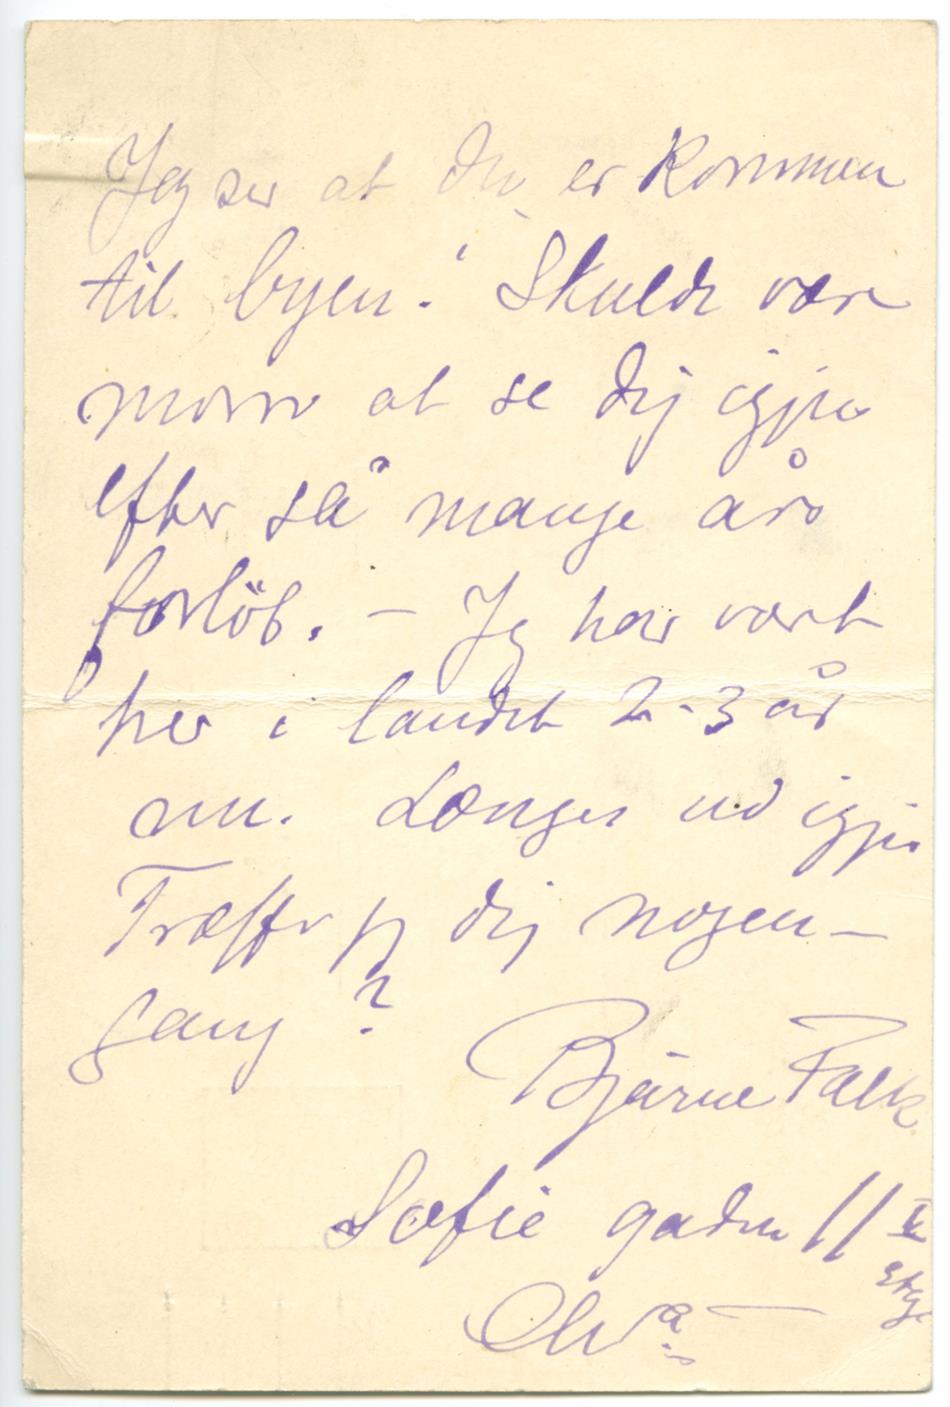 Jeg ser at du er kommen
til byen! Skulde være
morro at se dig igjen
efter så mange års
forlöb. – Jeg har vært
her i landet 2-3 år
nu. Længes ud igjen
Træffer jeg dig nogen-
gang?
Bjarne Falk
Sofie gaden 11 V
etg.
Chra